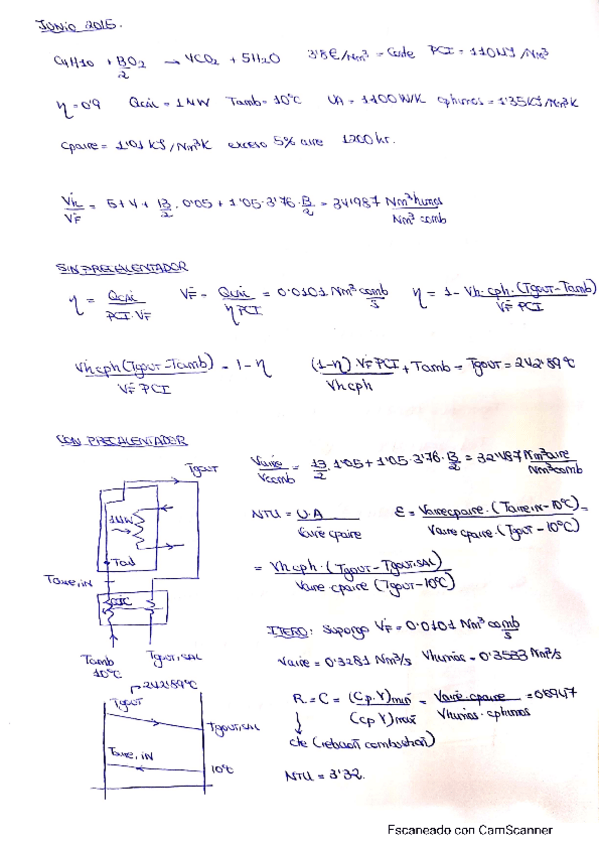 JUNIO 2015.
C4H10 + 13/2 O2 → 4CO2 + 5H2O 3'8€/Nm³ = Coste PCI = 110MJ/Nm³
η = 0'9 Qcal = 1MW Tamb = 10°C UA = 1100W/K cphumos = 1'35KJ/Nm³K
Cpaire = 1'01 KJ/Nm³K exceso 5% aire 1200 hr.
Vh/VF = 5+4+ 13/2 · 0'05 + 1'05 · 3'76 · 13/2 = 34'987 Nm³humos/Nm³ comb
SIN PRECALENTADOR
η = Qcal/PCI·VF VF = Qcal/ηPCI = 0'0101 Nm³comb/s η = 1 - Vh·cph·(Tgout-Tamb)/VF PCI
Vh cph (Tgout-Tamb)/VF PCI = 1-η (1-η) VF PCI/Vhcph + Tamb = Tgout = 242'89°C
CON PRECALENTADOR
Vaire/Vcomb = 13/2 · 1'05 + 1'05 · 3'76 · 13/2 = 32'487 Nm³aire/Nm³comb
Tgout
1MW
Tad
Taire,in
Tamb
10°C
Tgout,sal
NTU = U·A/Vaire cpaire ε = Vaire cpaire · (Taire in - 10°C)/Vaire cpaire · (Tgout - 10°C) =
= Vh cph · (Tgout - Tgout,sal)/Vaire · cpaire (Tgout - 10°C)
ITERO: Supongo VF = 0'0101 Nm³ comb/s
Vaire = 0'3281 Nm³/s Vhumos = 0'3533 Nm³/s
R = C = (Cp·V)min/(Cp·V)max = Vaire·cpaire/Vhumos·cphumos = 0'6947
cte (relación combustión)
NTU = 3'32.
242'89°C
Tgout
Tgout,sal
Taire, in
10°C
Escaneado con CamScanner